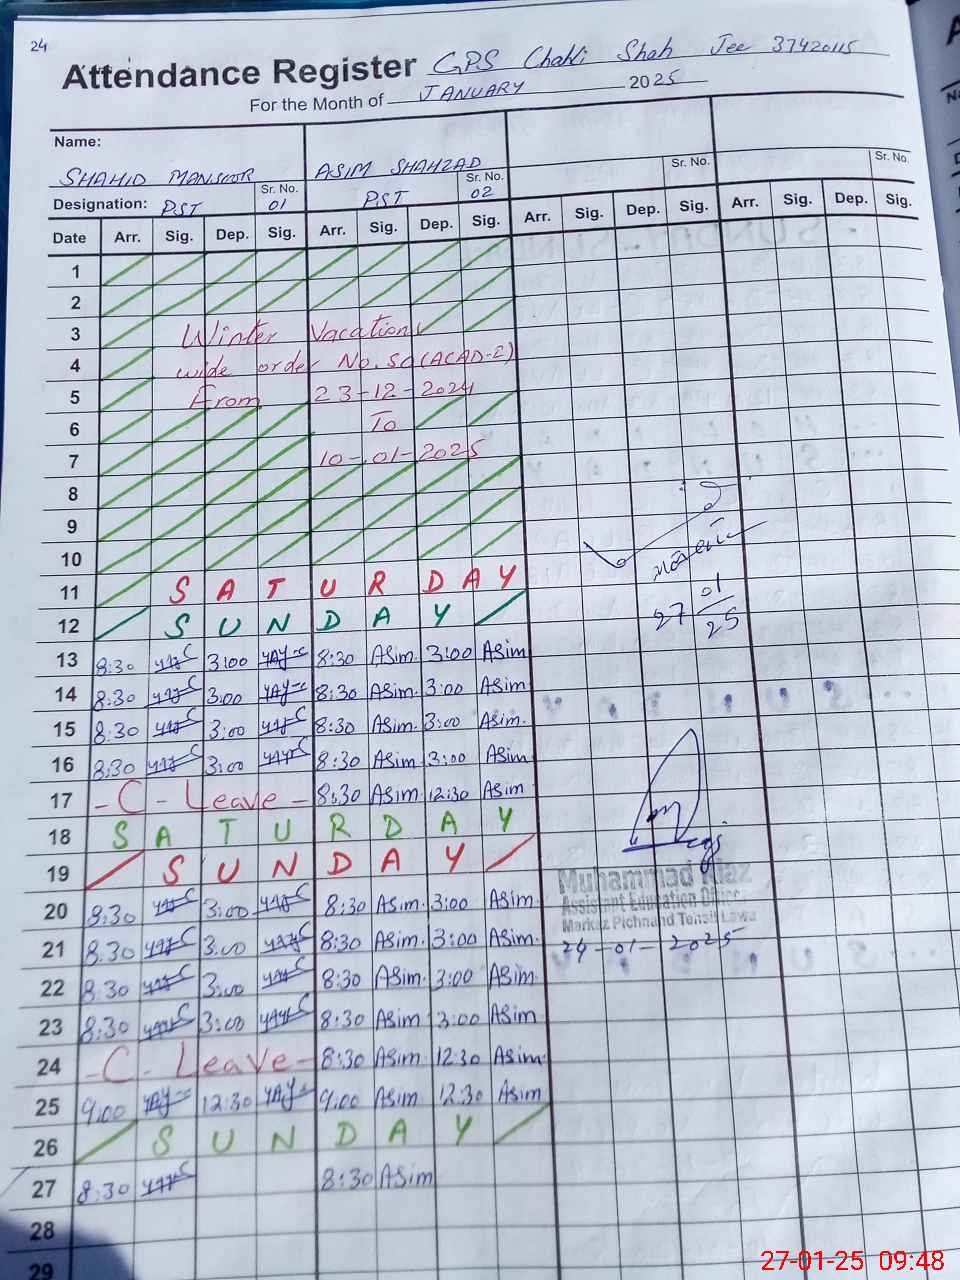 24
Attendance Register GPS Chakli Shah Jee 37420115
For the Month of JANUARY 2025
Name:
SHAHID MANSOOR ASIM SHAHZAD
Sr. No. Sr. No. Sr. No. Sr. No.
Designation: PST 01 PST 02
Date Arr. Sig. Dep. Sig. Arr. Sig. Dep. Sig. Arr. Sig. Dep. Sig. Arr. Sig. Dep. Sig.
1
2
3 Winter Vacations
4 wide order No. SO(ACAD-E)
5 From 23-12-2024
6 To
7 10-01-2025
8
9
10
11 SATURDAY
12 SUNDAY
27 01 25
13 8:30 3:00 8:30 Asim. 3:00 Asim
14 8:30 3:00 8:30 Asim. 3:00 Asim
15 8:30 3:00 8:30 Asim. 3:00 Asim.
16 8:30 3:00 8:30 Asim 3:00 Asim
17 - C - Leave - 8:30 Asim 12:30 Asim
18 SATURDAY
19 SUNDAY
Muhammad Riaz
Assistant Education Officer
Markaz Pichnand Tehsil Lawa
24-01-2025
20 8:30 3:00 8:30 Asim 3:00 Asim
21 8:30 3:00 8:30 Asim 3:00 Asim.
22 8:30 3:00 8:30 Asim. 3:00 Asim
23 8:30 3:00 8:30 Asim 3:00 Asim
24 - C - Leave - 8:30 Asim. 12:30 Asim.
25 9:00 12:30 9:00 Asim 12:30 Asim
26 SUNDAY
27 8:30 8:30 Asim
28
29
27-01-25 09:48